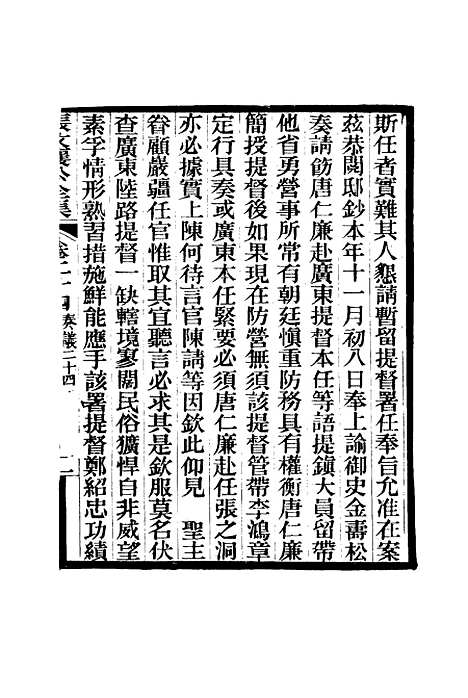 斯任者實難其人懇請暫留提督署任奉旨允准在案
茲恭閱邸鈔本年十一月初八日奉上諭御史金壽松
奏請飭唐仁廉赴廣東提督本任等語提鎭大員留帶
他省勇營事所常有朝廷愼重防務具有權衡唐仁廉
簡授提督後如果現在防營無須該提督管帶李鴻章
定行具奏或廣東本任緊要必須唐仁廉赴任張之洞
亦必據實上陳何待言官陳請等因欽此仰見　聖主
眷顧嚴疆任官惟取其宜聽言必求其是欽服莫名伏
查廣東陸路提督一缺轄境寥闊民俗獷悍自非威望
素孚情形熟習措施鮮能應手該署提督鄭紹忠功績
奏議二十四